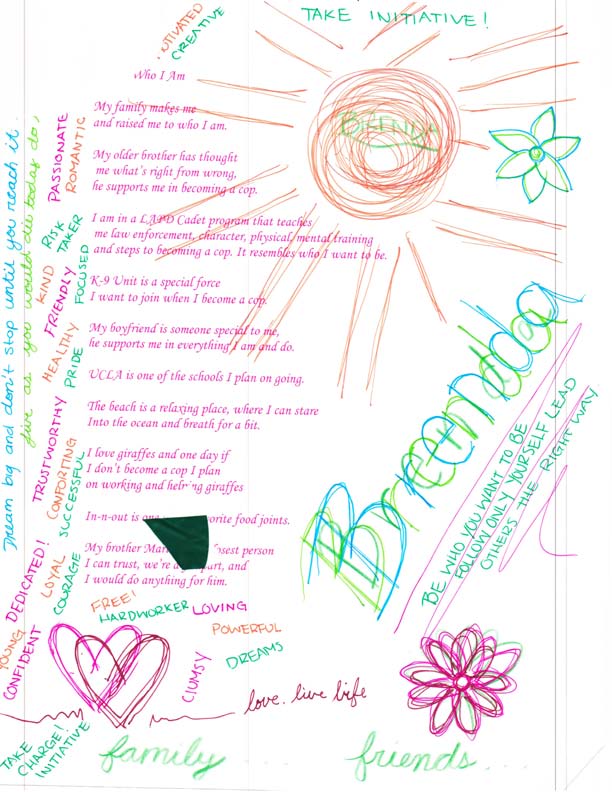 TAKE INITIATIVE!
MOTIVATED
CREATIVE
Who I Am
My family makes me
and raised me to who I am.
My older brother has thought
me what's right from wrong,
he supports me in becoming a cop.
I am in a LAPD Cadet program that teaches
me law enforcement, character, physical, mental training
and steps to becoming a cop. It resembles who I want to be.
K-9 Unit is a special force
I want to join when I become a cop.
My boyfriend is someone special to me,
he supports me in everything I am and do.
UCLA is one of the schools I plan on going.
The beach is a relaxing place, where I can stare
Into the ocean and breath for a bit.
I love giraffes and one day if
I don't become a cop I plan
on working and helping giraffes
In-n-out is food joints.
My brother
I can trust, we're and
I would do anything for him.
Dream big and don't stop until you reach it.
live as you would die today do,
PASSIONATE
ROMANTIC
RISK
TAKER
KIND
FRIENDLY
FOCUSED
HEALTHY
PRIDE
TRUSTWORTHY
COMFORTING
SUCCESSFUL
DEDICATED!
LOYAL
COURAGE
YOUNG
CONFIDENT
FREE!
HARDWORKER
LOVING
POWERFUL
DREAMS
CLUMSY
love. live life
Brenda
BE WHO YOU WANT TO BE
FOLLOW ONLY YOURSELF LEAD
OTHERS THE RIGHT WAY
TAKE
CHARGE!
INITIATIVE
family....
friends....